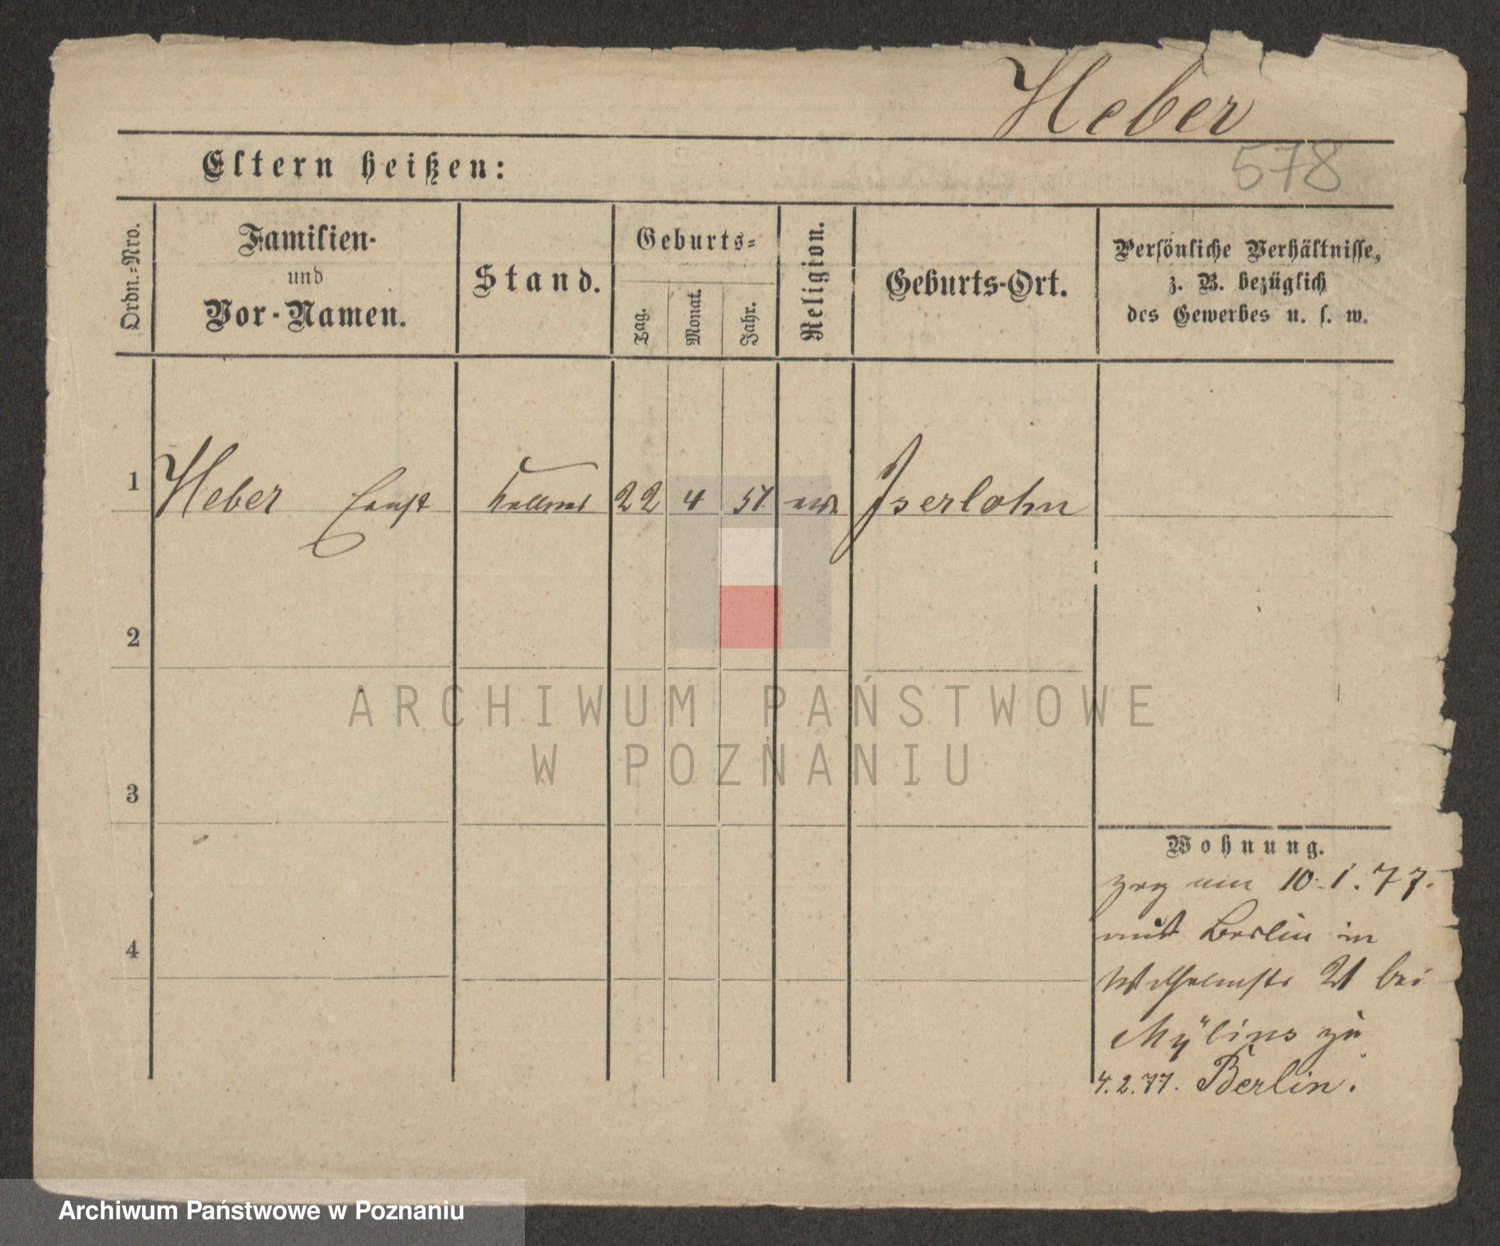 Heber
578
Eltern heißen:
Ordn.-Nro.
Familien-
und
Vor-Namen.
Stand.
Geburts-
Tag.
Monat.
Jahr.
Religion.
Geburts-Ort.
Persönliche Verhältnisse,
z. B. bezüglich
des Gewerbes u. s. w.
1 Heber Ernst Kellner 22 4 51 Iserlohn
2
ARCHIWUM PAŃSTWOWE
W POZNANIU
3
Wohnung.
10.1.77.
Berlin in
4
Wilhelmstr 21 bei
Mÿlius zu
4.2.77. Berlin.
Archiwum Państwowe w Poznaniu